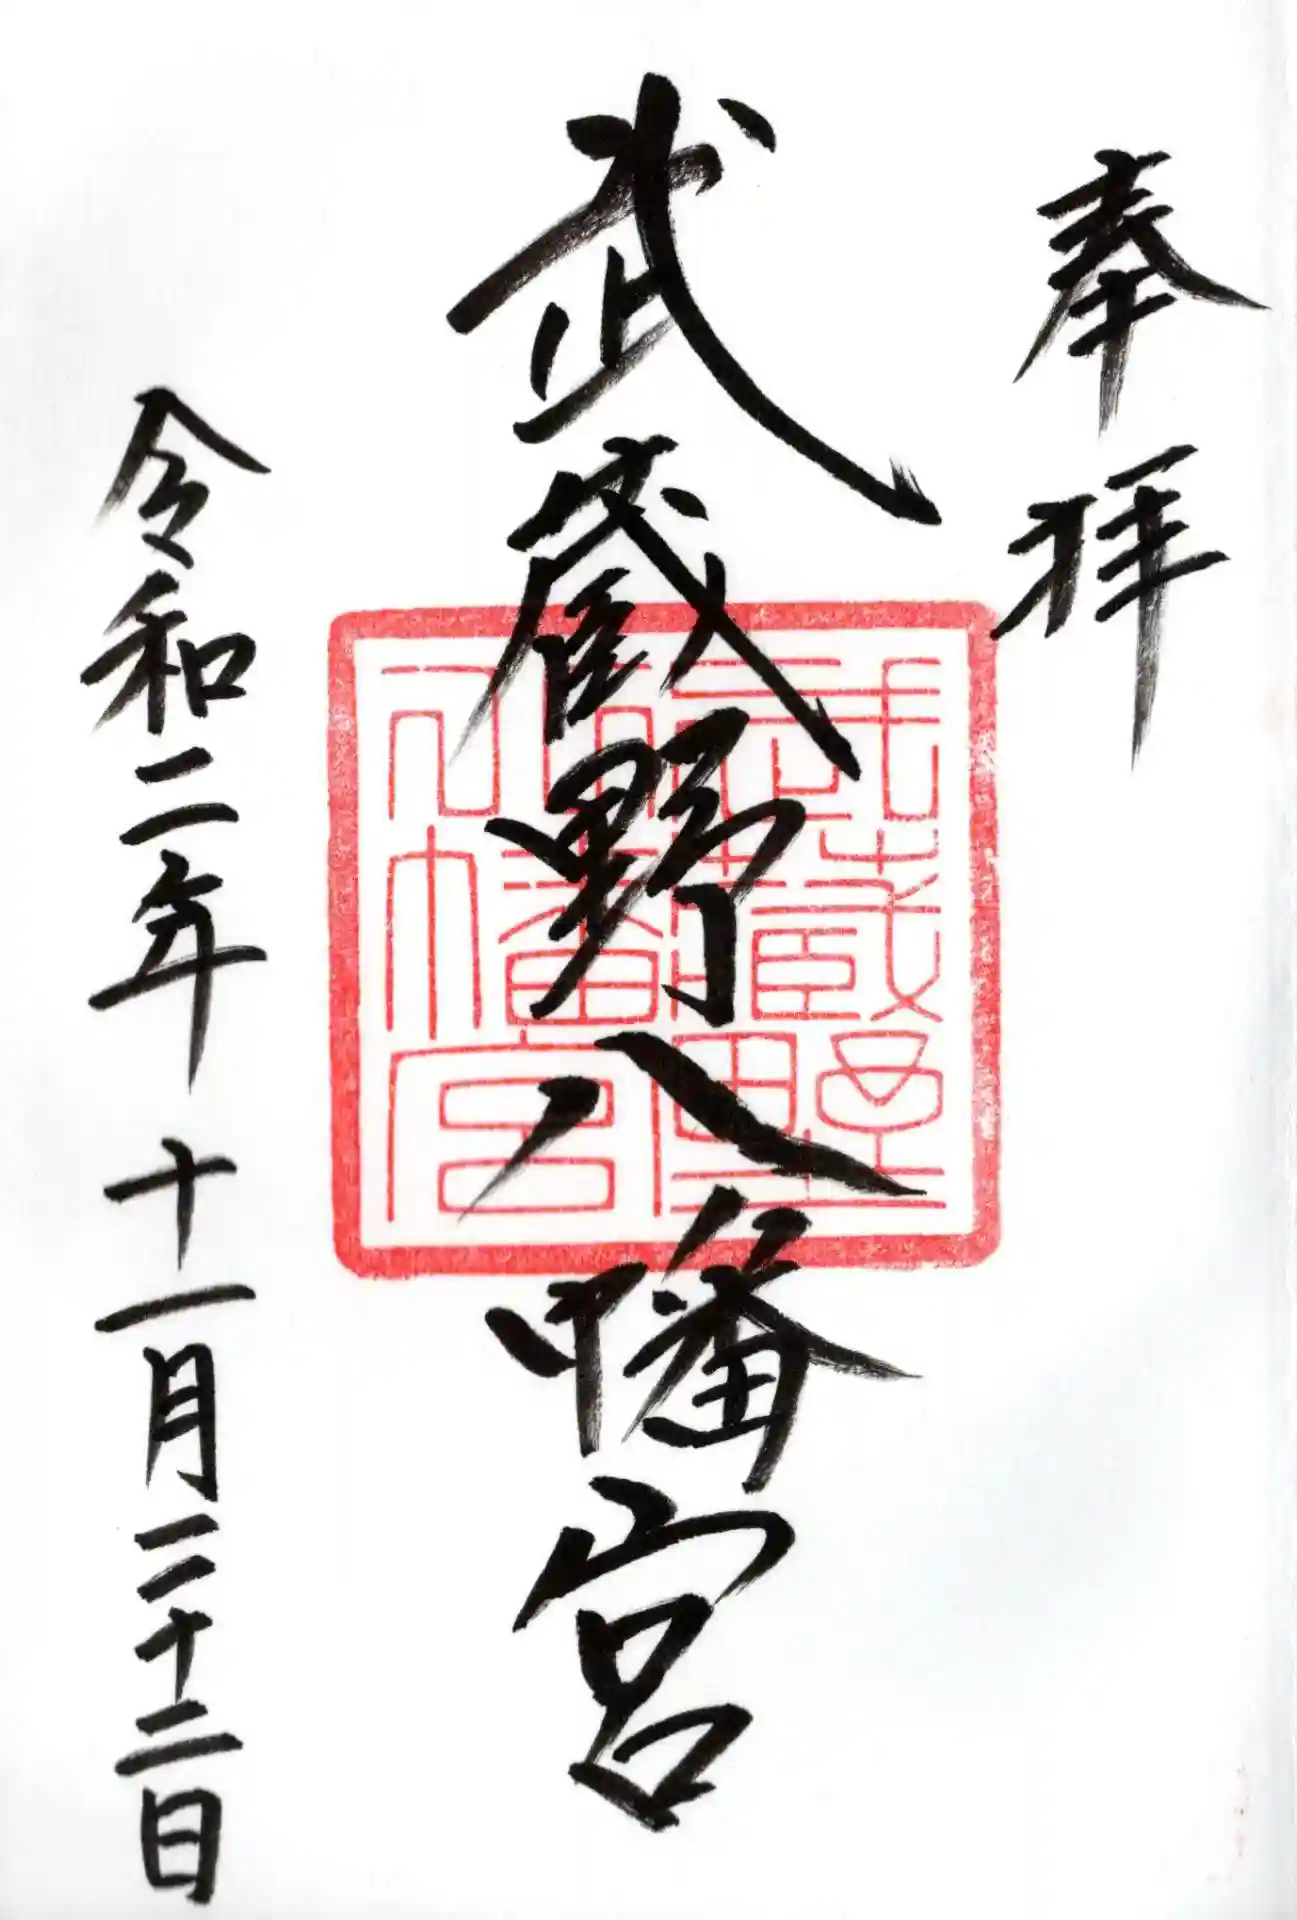 奉拝
武蔵野八幡宮
武蔵野
八幡宮
令和二年 十一月二十二日